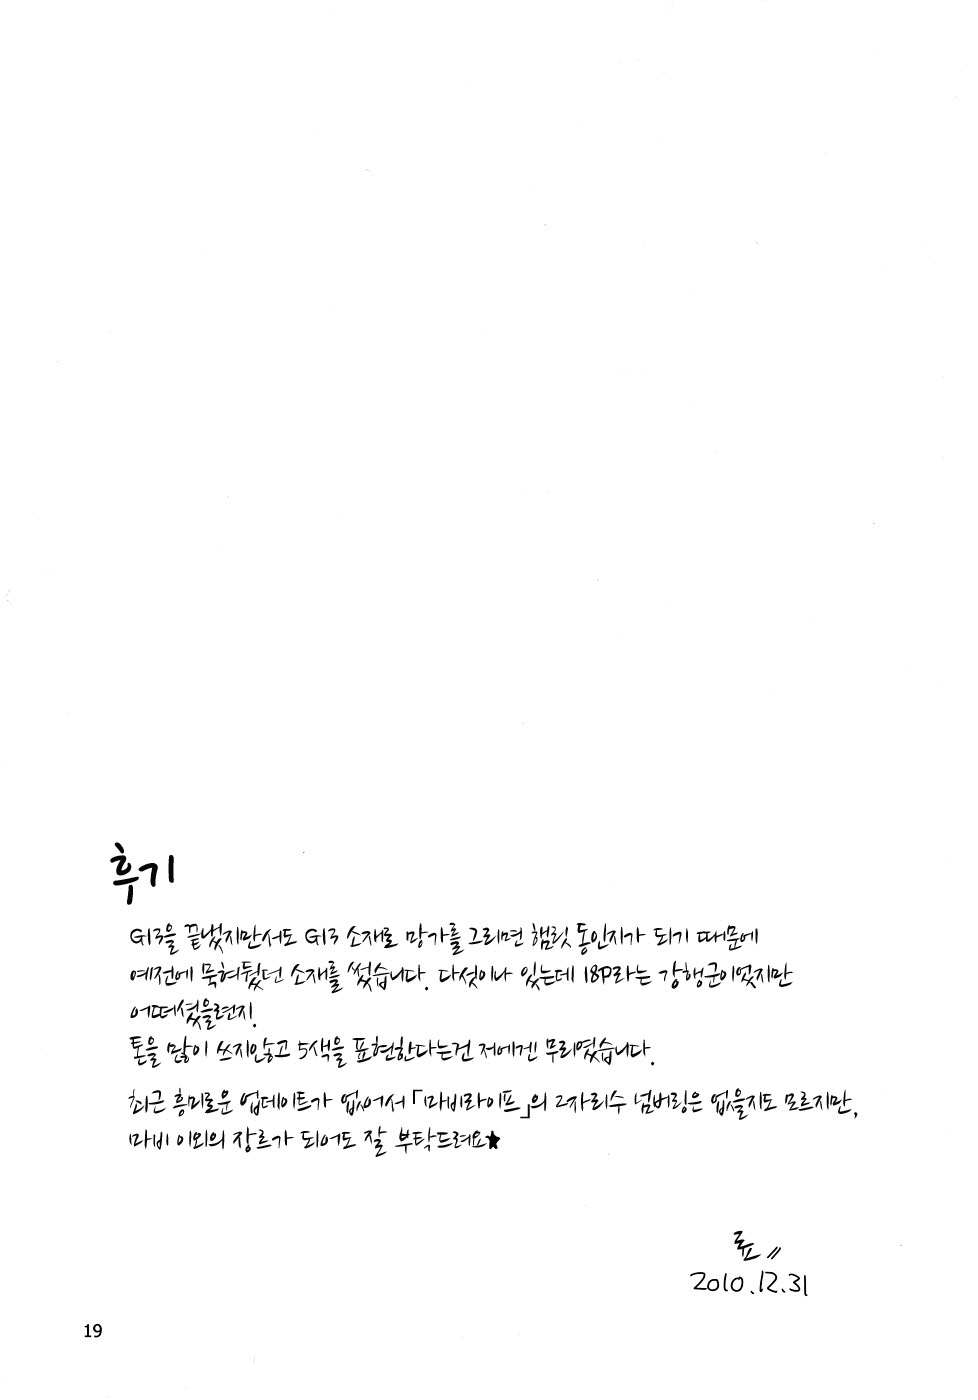 후기
G13을 끝냈지만서도 G13 소재로 망가를 그리면 햄릿 동인지가 되기 때문에
예전에 묵혀뒀던 소재를 썼습니다. 다섯이나 있는데 18P라는 강행군이었지만
어떠셨을런지.
톤을 많이 쓰지않고 5색을 표현한다는건 저에겐 무리였습니다.
최근 흥미로운 업데이트가 없어서 「마비라이프」의 2자리수 넘버링은 없을지도 모르지만,
마비 이외의 장르가 되어도 잘 부탁드려요★
료〃
2010.12.31
19